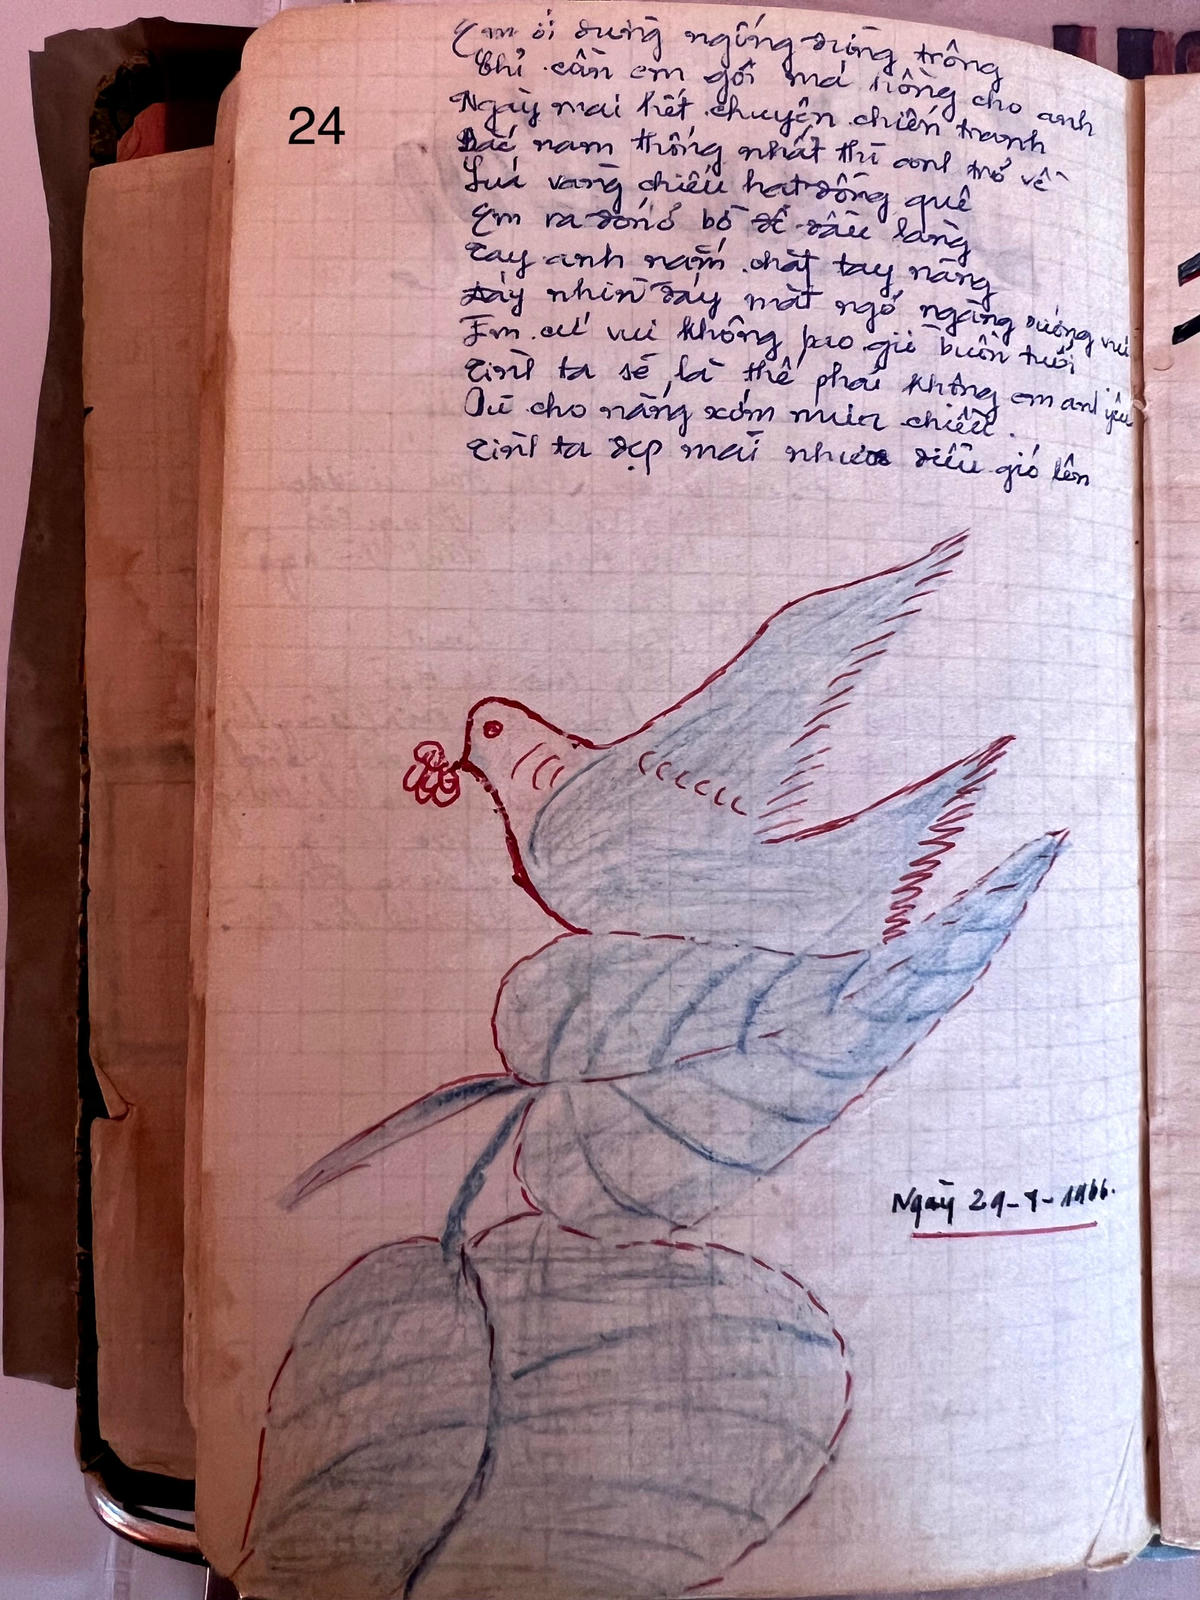 24
Em ơi đừng ngóng đừng trông
Chỉ cần em gối má hồng cho anh
Ngày mai hết chuyện chiến tranh
Bắc nam thống nhất thì anh trở về
Lúa vàng chiếu hạt đồng quê
Em ra đón ở bờ đê đầu làng
Tay anh nắm chặt tay nàng
Đây nhìn đấy mắt ngỏ ngàng sướng vui
Em cứ vui không bao giờ buồn tuổi
Tình ta sẽ là thế phải không em anh yêu
Dù cho nắng xớm mưa chiều.
Tình ta đẹp mãi như diều gió lên
Ngày 29-7-1966.